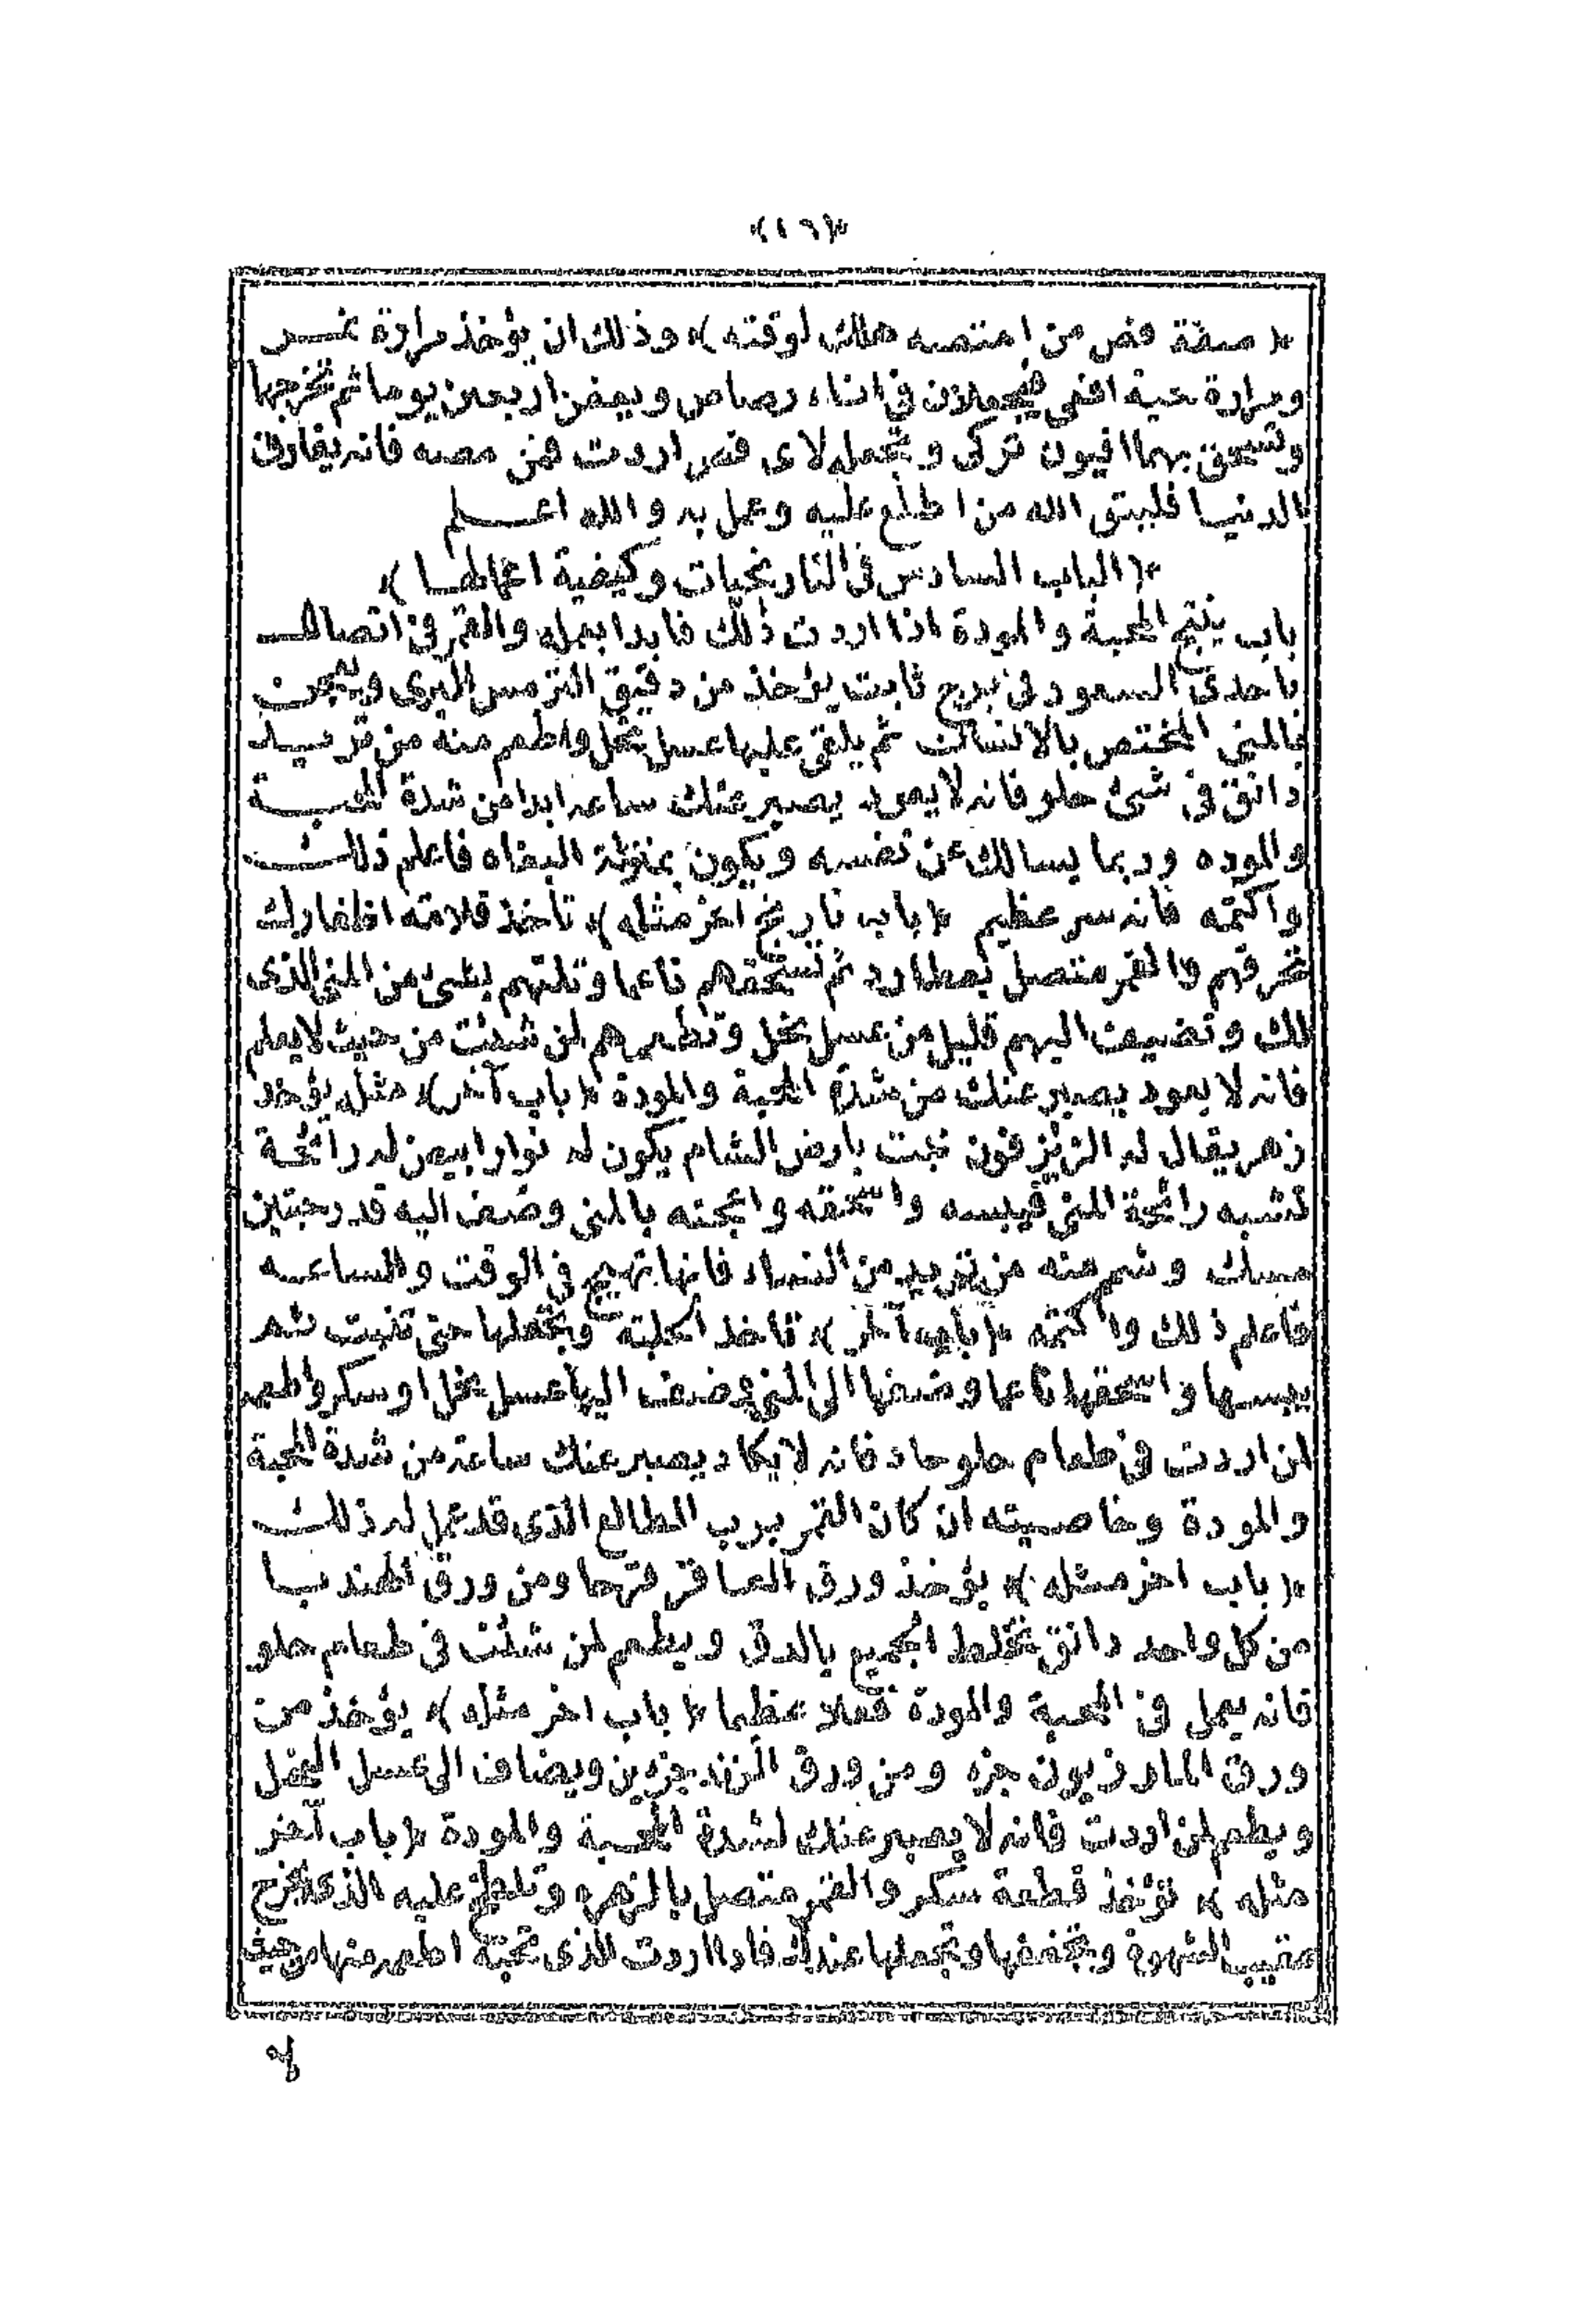 ﴿١٦﴾
﴿ صفة فص من امتصه هلك لوقته ﴾ وذلك ان يؤخذ مرارة نمـــر
ومرارة حية افعى فيجعلان فى اناء رصاص ويعفن اربعين يوما ثم تخرجها
وتسحق بهما افيون تركى وتجعله لاى فص اردت فمن مصه فانه يفارق
الدنيا فليتق الله من اطلع عليه وعمل به والله اعـــلم
﴿ الباب السادس فى النارنجيات وكيفية اعمالهـا ﴾
باب ينتج المحبة والمودة اذا اردت ذلك فابدا بعمله والقمر فى اتصالـه
باحدى السعود فى برج ثابت يؤخذ من دقيق الترمس البرى ويعجن
بالمنى المختص بالانسان ثم يلقى عليها عسل نحل واطعم منه من تريـد
دانق فى شىء حلو فانه لا يعد يصبر عنك ساعه ابدا من شدة المحبـة
والموده وربما يسالك عن نفسه ويكون بمنزلة فاعلم ذلك
واكتمه فانه سر عظيم ﴿ باب نارنج اخر مثله ﴾ تأخذ قلامة اظفارك
تحرقهم والقمر متصل بعطارد ثم تسحقهم ناعما وتلتهم بشىء من المنى الذى
لك وتضيف اليهم قليل من عسل نحل وتطعمهم لمن شئت من حيث لا يعلم
فانه لا يعود يصبر عنك من شدة المحبة والمودة ﴿ باب آخر ﴾ مثله يؤخذ
زهر يقال له الزيزفون نبت بارض الشام يكون له نوار ابيض له رائحة
تشبه رائحة المنى فيبسه واسحقه واعجنه بالمنى وضف اليه قدر حبتين
مسك وشم منه من تريد من النساء فانها تهيج فى الوقت والساعـه
فاعلم ذلك واكتمه ﴿ باب آخر ﴾ تاخذ الحلبة وتجعلها حتى تنبت ثم
يبسها واسحقها ناعما وضفها الى المنى وضف اليها عسل نحل او سكر واطعمه
لمن اردت فى طعام حلو حاد فانه لا يكاد يصبر عنك ساعة من شدة المحبة
والمودة وخاصيته ان كان القمر برب الطالع الذى قد عمل له ذلك
﴿ باب اخر مثله ﴾ يؤخذ ورق العاقر قرحا ومن ورق الهندبـا
من كل واحد دانق تخلط الجميع بالدق ويطعم لمن شئت فى طعام حلو
فانه يعمل فى المحبة والمودة فعلا عظيما ﴿ باب اخر مثله ﴾ يؤخذ من
ورق المازريون جزء ومن ورق الرند جزءين ويضاف الى عسل النحل
ويطعم لمن اردت فانه لا يصبر عنك لشدة المحبة والمودة ﴿ باب آخر
مثله ﴾ تؤخذ قطعة سكر والقمر متصل بالزهره وتلطخ عليه الذى يخرج
عقيب الشهوة وتجففها وتجعلها عندك فاذا اردت الذى تحبه اطعمه منها من حيث